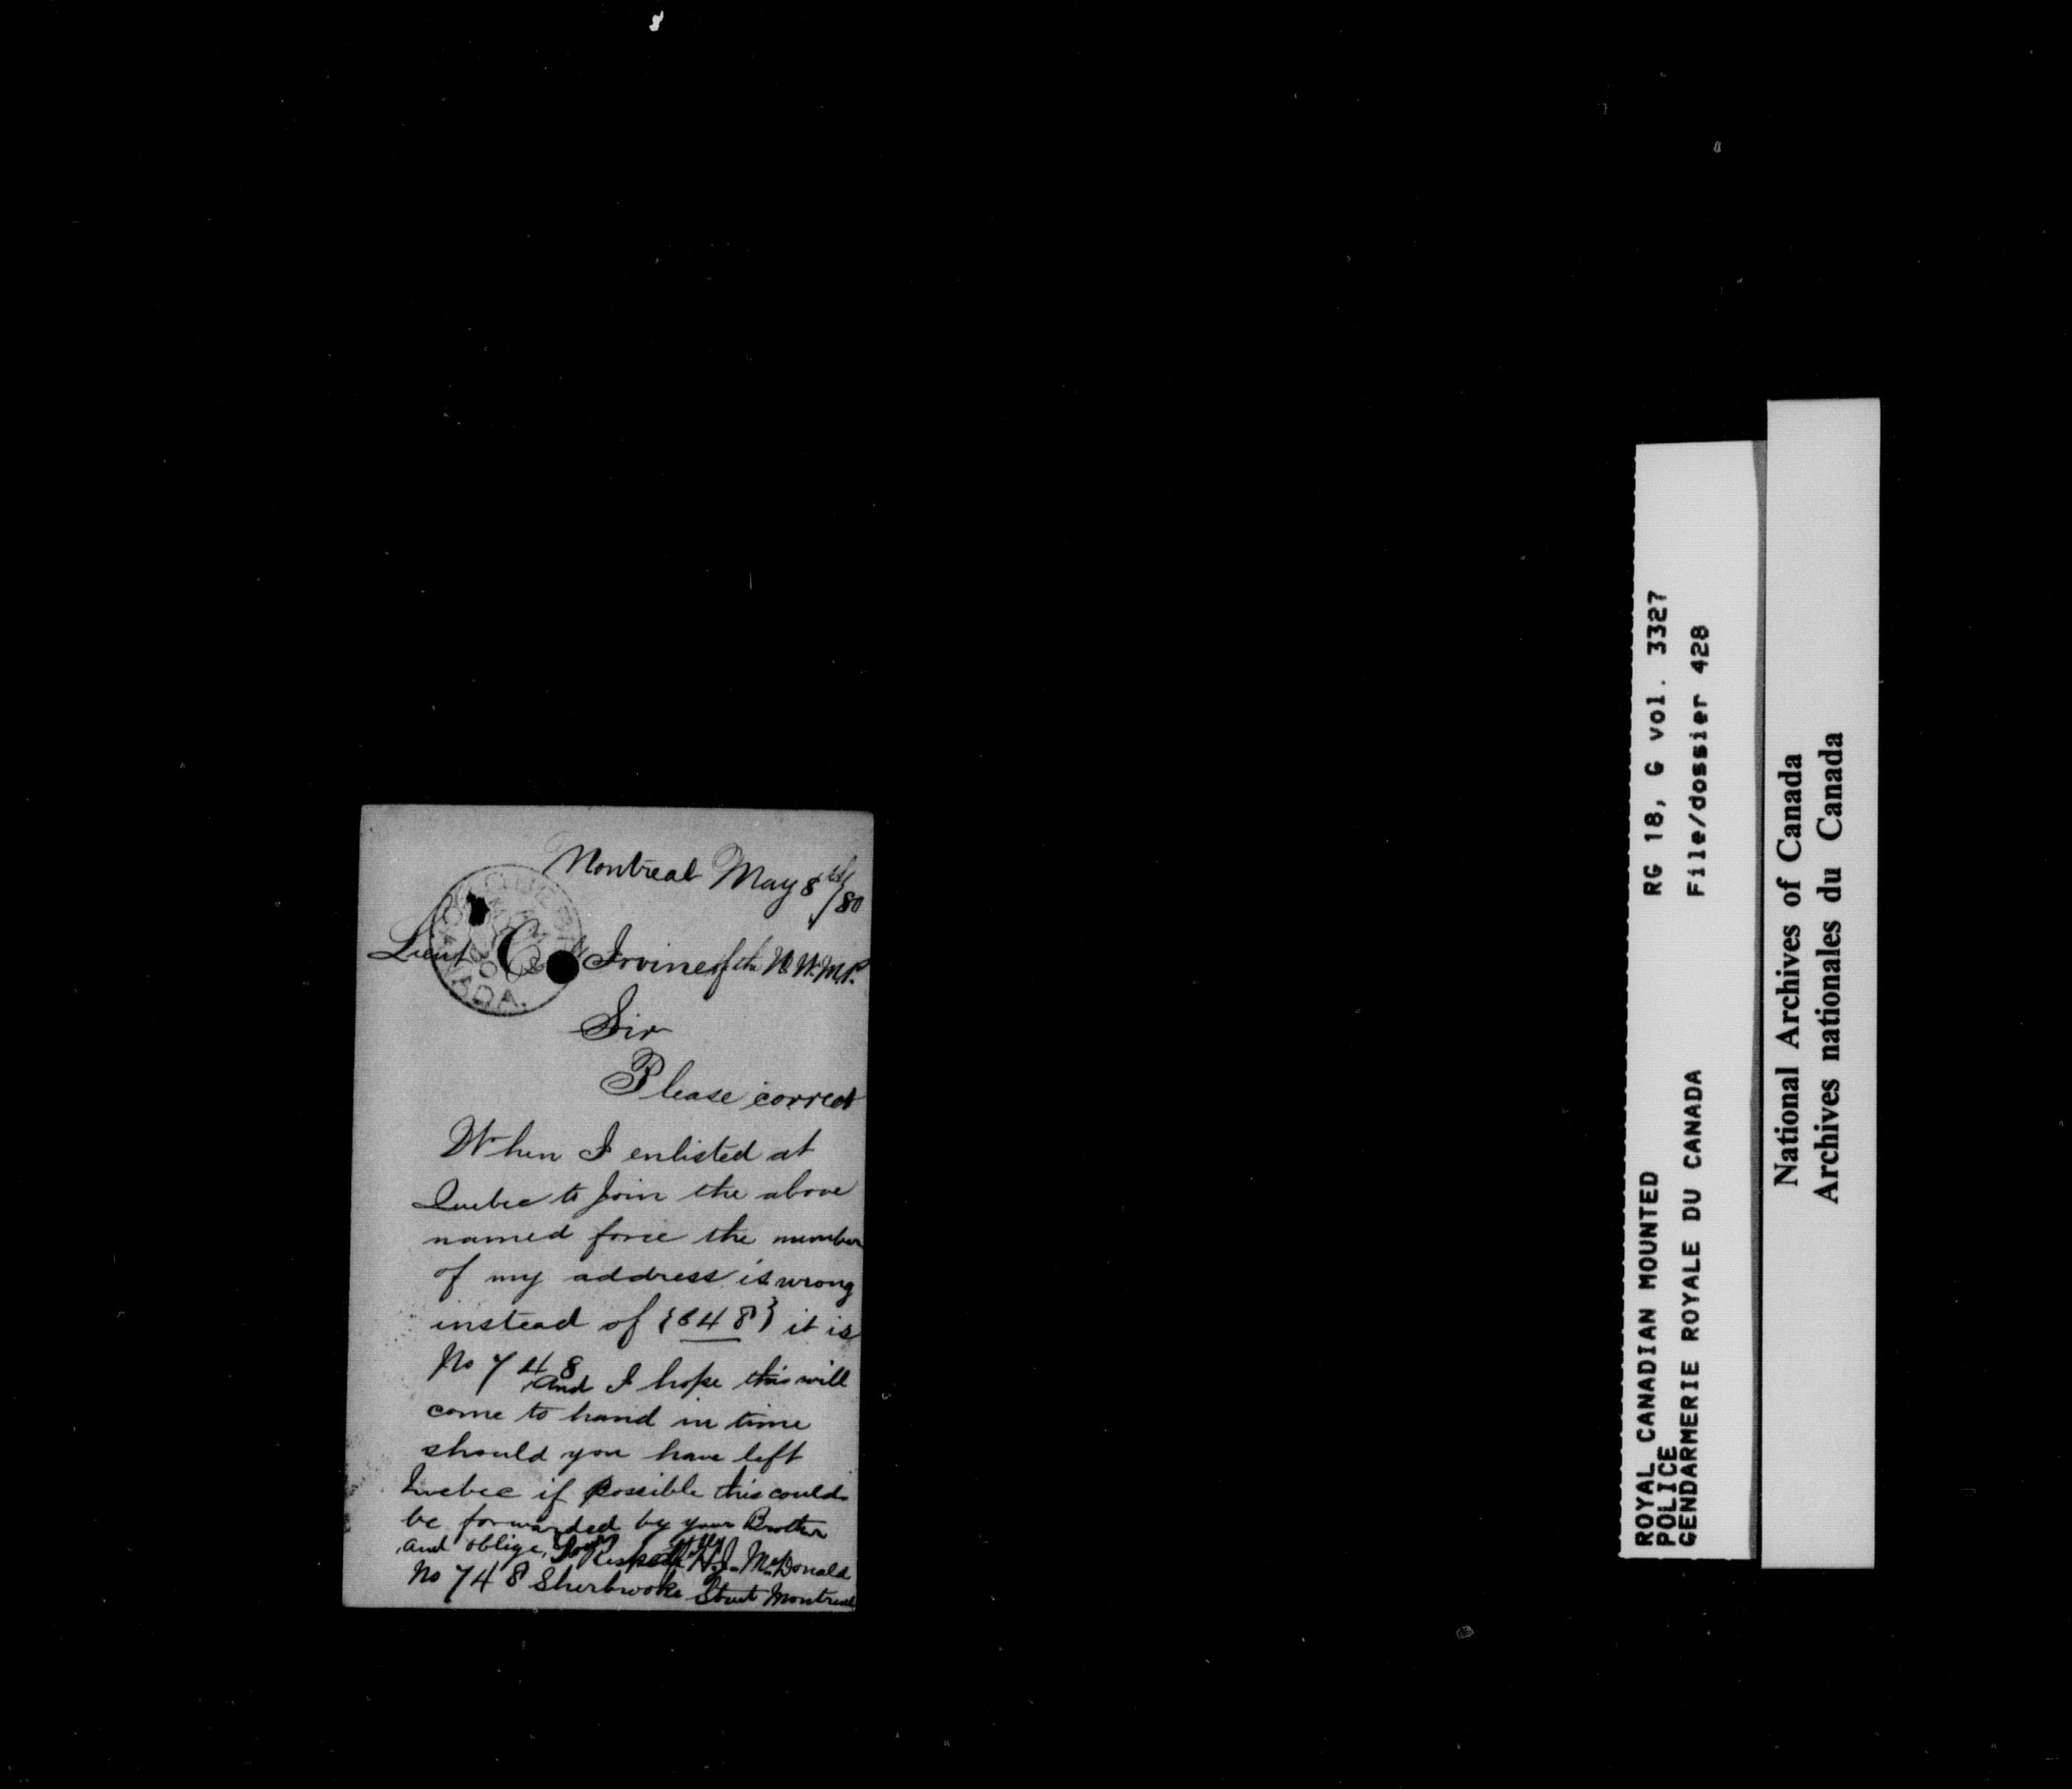 Montreal May 8th/80
Lieut Co Irvine of the N.W.M.P.
Sir
Please correct
When I enlisted at
Quebec to Join the above
named force the number
of my address is wrong
instead of {648} it is
No 748
and I hope this will
come to hand in time
should you have left
Quebec if possible this could
be forwarded by your Brother
and oblige, Yours Respectfully H.J. McDonald
No 748 Sherbrooke Street Montreal
QUEBEC
CANADA.
ROYAL CANADIAN MOUNTED
POLICE
GENDARMERIE ROYALE DU CANADA
RG 18, G vol. 3327
File/dossier 428
National Archives of Canada
Archives nationales du Canada